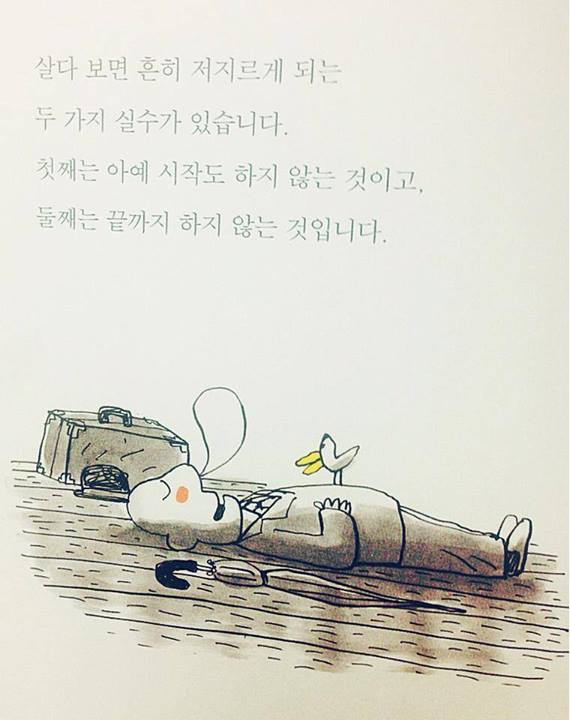 살다 보면 흔히 저지르게 되는
두 가지 실수가 있습니다.
첫째는 아예 시작도 하지 않는 것이고,
둘째는 끝까지 하지 않는 것입니다.